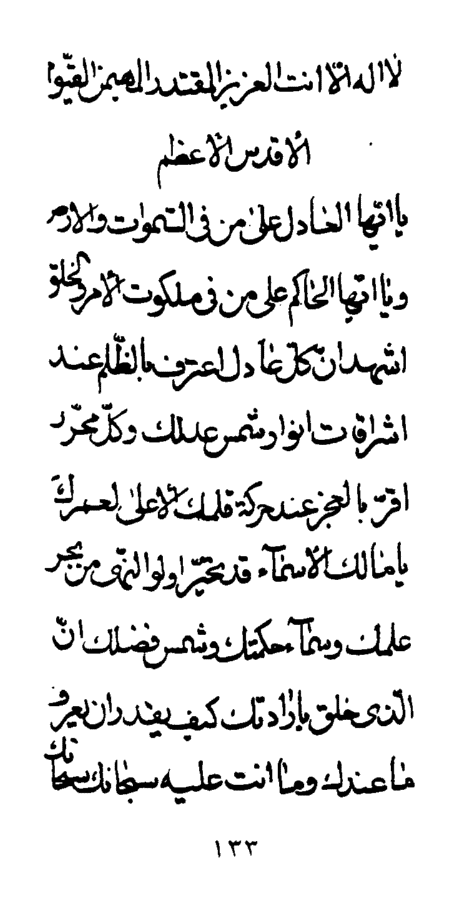 لا اله الّا انت العزيز المقتدر المهيمن القيّوم
الاقدس الاعظم
يا ايّها العادل على من فى السّموات و الارض
و يا ايّها الحاكم على من فى ملكوت الامر و الخلق
اشهد ان كلّ عادل اعترف بالظّلم عند
اشراقات انوار شمس عدلك و كلّ محرّر
اقرّ بالعجز عند حركة قلمك الاعلى لعمرك
يا مالك الاسمآء قد تحيّر اولو النّهى من بحر
علمك و سمآء حكمتك و شمس فضلك انّ
الّذى خلق بارادتك كيف يقدر ان يعرف
ما عندك و ما انت عليه سبحانك سبحانك
١٣٣